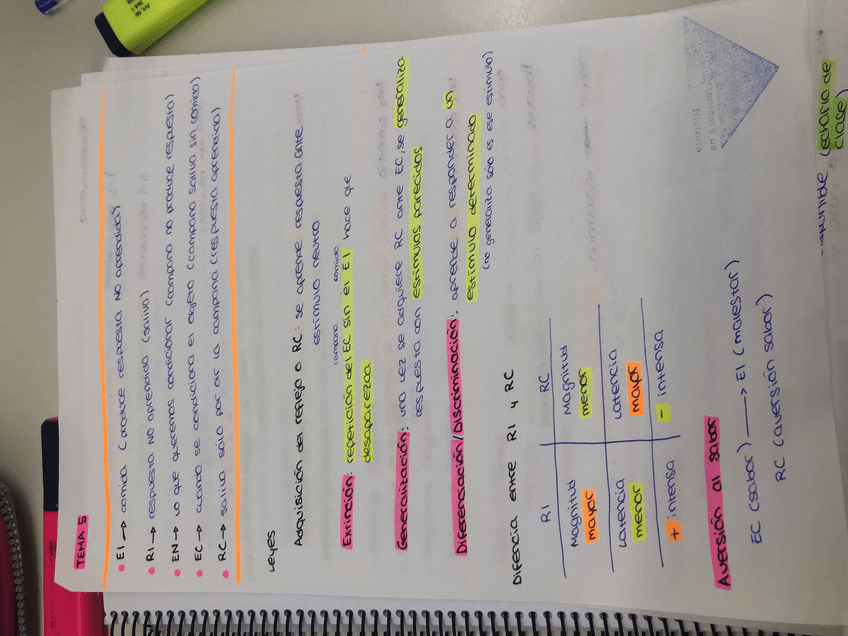 TEMA 5
• EI → comida (produce respuesta NO aprendida)
• RI → respuesta NO aprendida (saliva)
• EN → lo que queremos condicionar (campana no produce respuesta)
• EC → cuando se condiciona el objeto (campana saliva sin comida)
• RC → saliva sólo por oír la campana (respuesta aprendida)
Leyes
Adquisición del reflejo o RC: se aprende respuesta ante
estímulo neutro
campana comida
Extinción: repetición del EC sin el EI hace que
desaparezca
Generalización: una vez se adquiere RC ante EC, se generaliza
respuesta con estímulos parecidos
Diferenciación/Discriminación: aprende a responder a un
estímulo determinado
(no generaliza sólo es ese estímulo)
Difencia entre RI y RC
RI RC
Magnitud Magnitud
mayor menor
Latencia Latencia
menor mayor
+ intensa - intensa
Aversión al sabor
EC (sabor) → EI (malestar)
RC (aversión sabor)
clase)